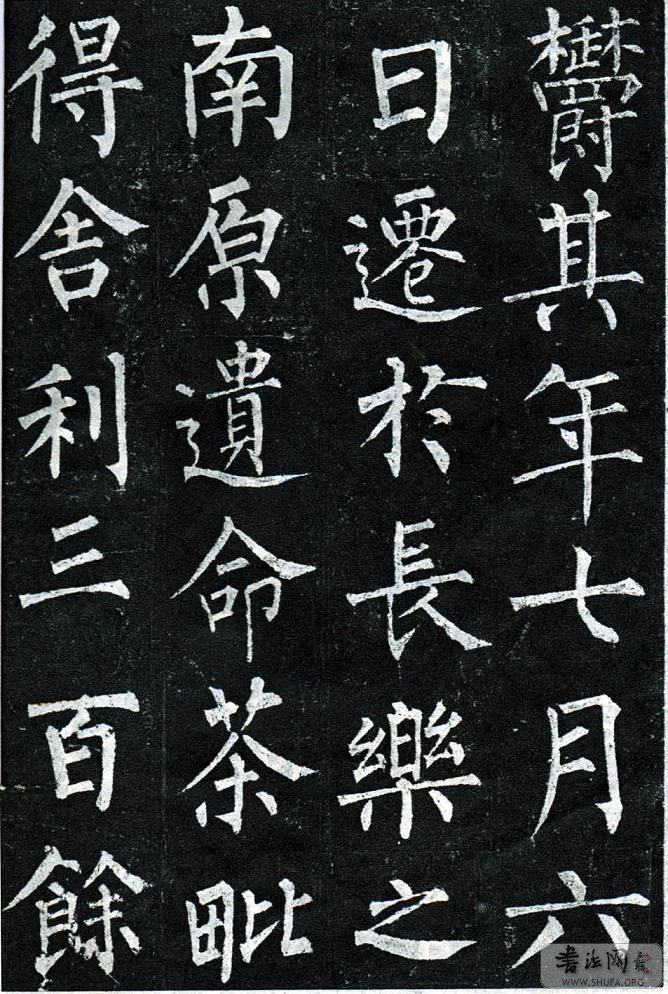 欝其年七月六
日遷於長樂之
南原遺命茶毗
得舍利三百餘
書法网
WWW.SHUFA.ORG